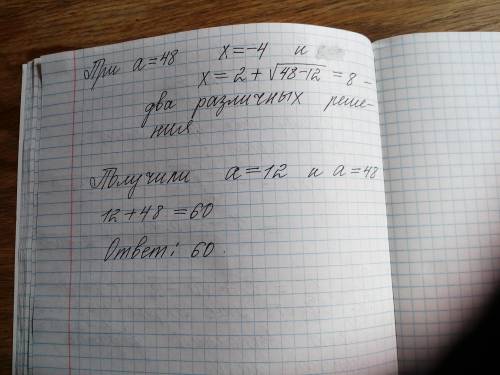 При a=48 x=-4 и
x=2+√48-12=8-
два различных реше-
ния.
Получили a=12 и a=48
12+48=60
Ответ: 60.